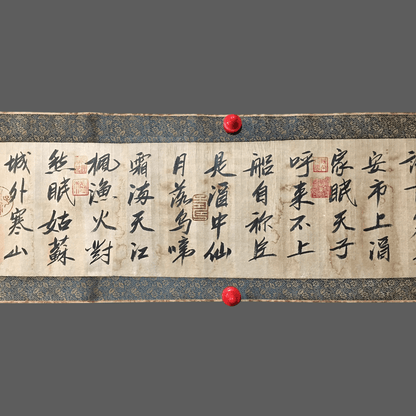 安市上酒
家眠天子
呼来不上
船自称臣
是酒中仙
月落烏啼
霜滿天江
楓漁火對
愁眠姑蘇
城外寒山